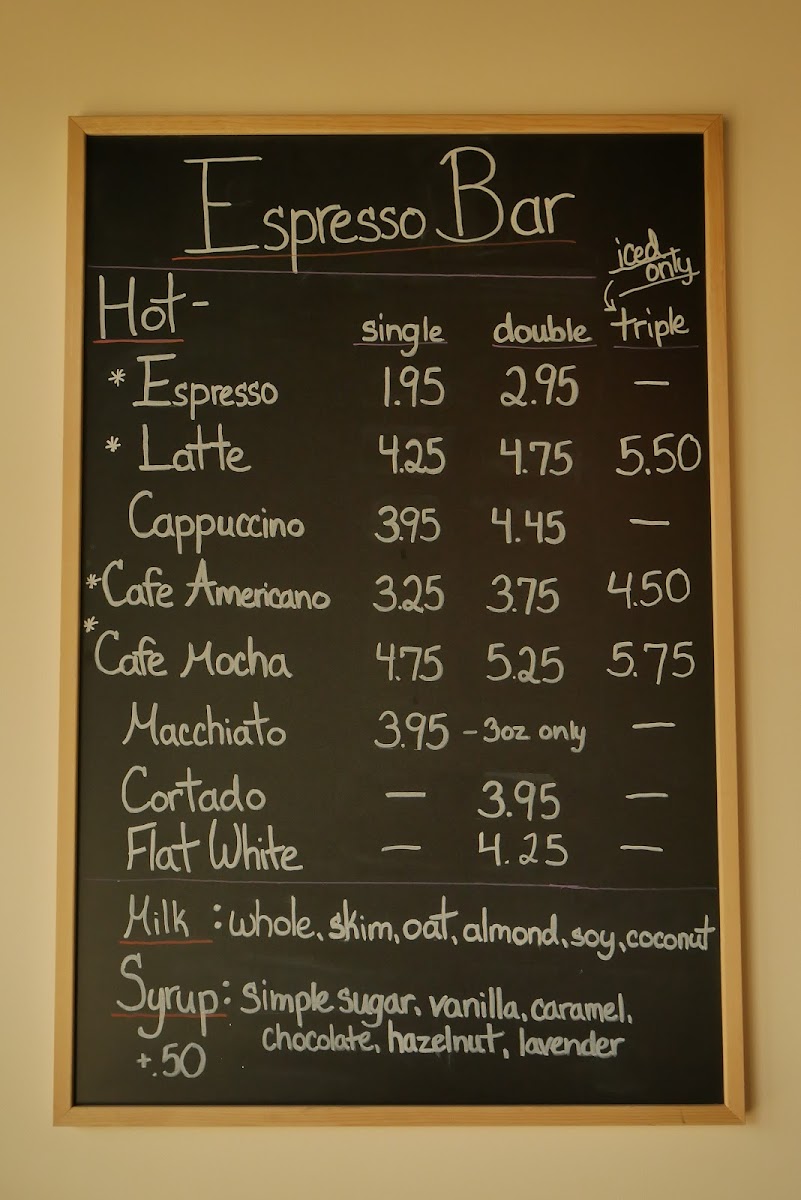 Espresso Bar
iced only
Hot-
single double triple
* Espresso 1.95 2.95 —
* Latte 4.25 4.75 5.50
Cappuccino 3.95 4.45 —
* Cafe Americano 3.25 3.75 4.50
* Cafe Mocha 4.75 5.25 5.75
Macchiato 3.95 - 3oz only —
Cortado — 3.95 —
Flat White — 4.25 —
Milk : whole, skim, oat, almond, soy, coconut
Syrup: Simple sugar, vanilla, caramel,
chocolate, hazelnut, lavender
+.50